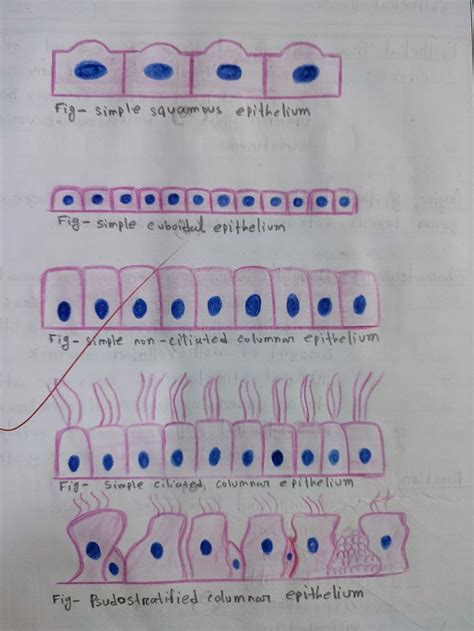 Fig- simple squamous epithelium
Fig- simple cuboidal epithelium
Fig- simple non-ciliated columnar epithelium
Fig- simple ciliated columnar epithelium
Fig- Psudostratified columnar epithelium